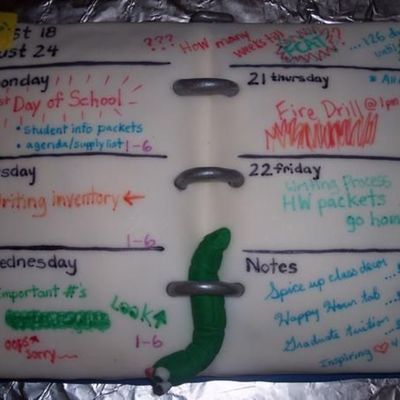 st 18
ust 24
onday
Day of School
• student info packets
• agenda/supply list 1-6
sday
riting inventory ←
1-6
ednesday
mportant #'s
LOOK ↑
oops ↑
sorry
1-6
??? How many
weeks till
FCAT ??
...126 da
until
21 thursday
Fire Drill @ 1pm
22 friday
Writing Process
HW packets
go hom
Notes
Spice up class decor
Happy Hour tab
Graduate tuition
Inspiring ♡